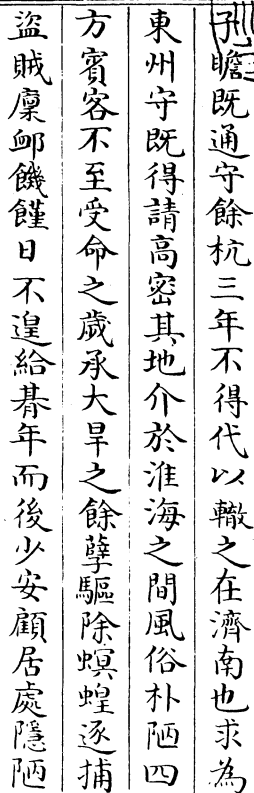 子瞻既通守餘杭三年不得代以轍之在濟南也求為
東州守既得請高密其地介於淮海之間風俗朴陋四
方賓客不至受命之歲承大旱之餘孽驅除螟蝗逐捕
盜賊廩䘏饑饉日不遑給朞年而後少安顧居處隱陋